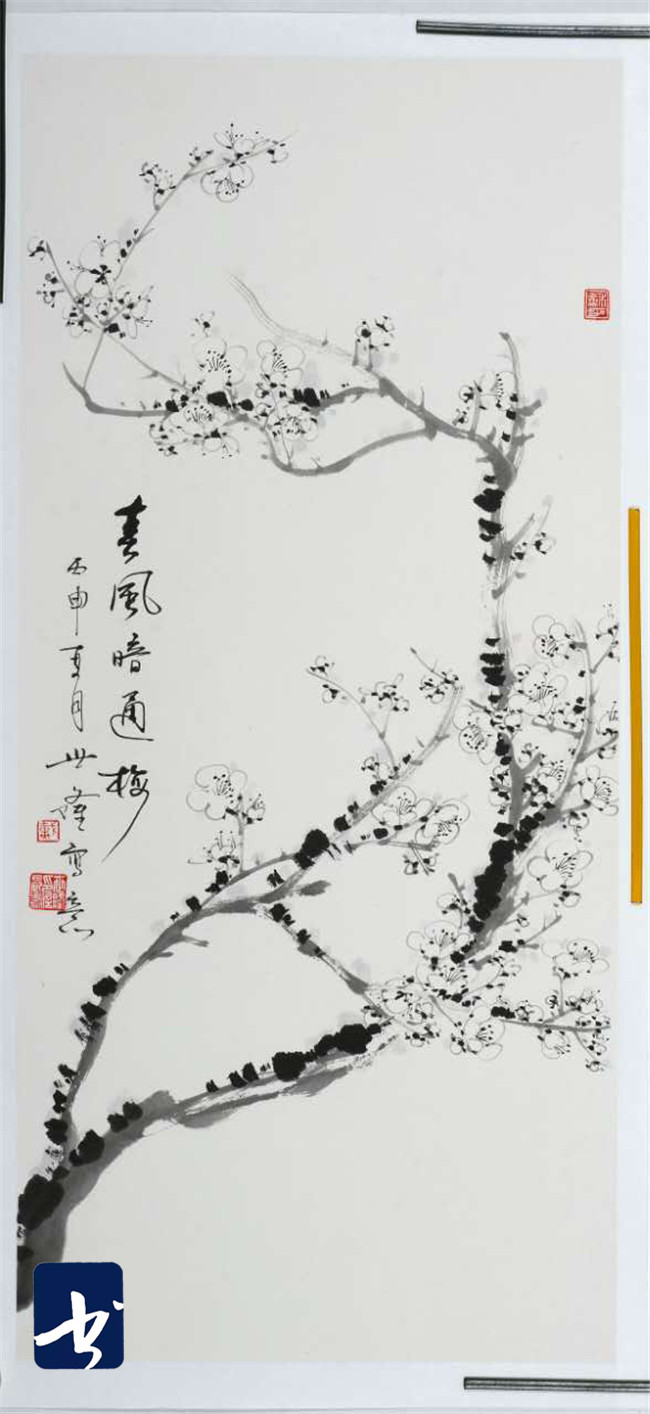 春風暗通梅
丙申夏月世隆寫意
书